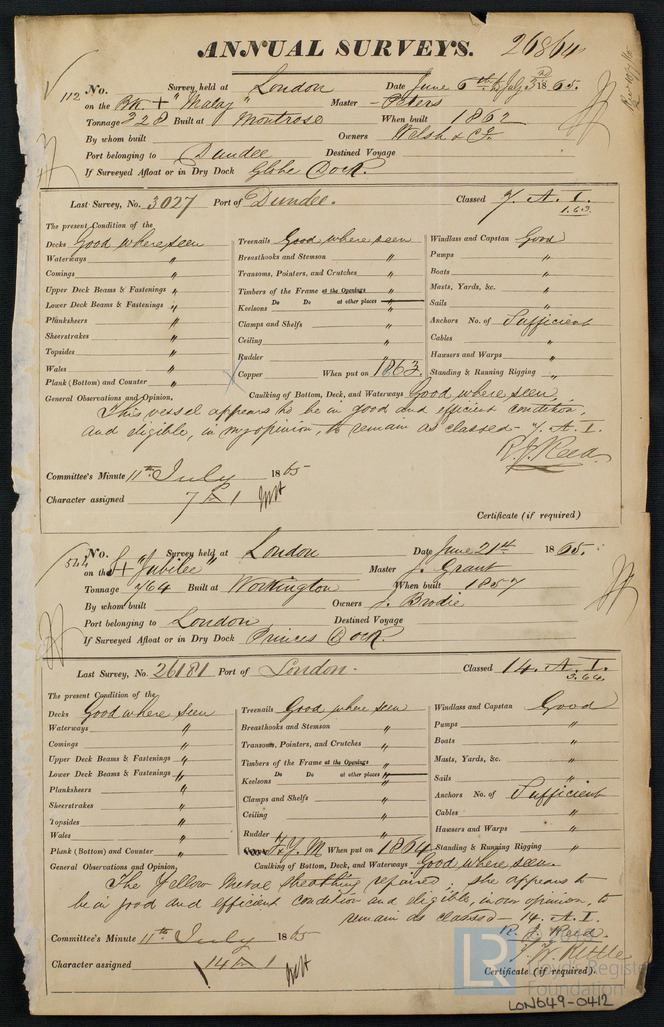 ANNUAL SURVEYS. 26864
112 No. Survey held at London Date June 6th & July 3rd 1865.
on the Bk + "Malay" Master - Peters
Tonnage 328 Built at Montrose When built 1862
By whom built Owners Welsh & Co.
Port belonging to Dundee Destined Voyage
If Surveyed Afloat or in Dry Dock Globe Dock.
Last Survey, No. 3027 Port of Dundee. Classed 7. A. 1.
1.63.
The present Condition of the
Decks Good where seen Treenails Good where seen Windlass and Capstan Good
Waterways " Breasthooks and Stemson " Pumps "
Comings " Transoms, Pointers, and Crutches " Boats "
Upper Deck Beams & Fastenings " Timbers of the Frame at the Openings " Masts, Yards, &c. "
Lower Deck Beams & Fastenings " Do Do at other places " Sails "
Keelsons "
Planksheers " Clamps and Shelfs " Anchors No. of Sufficient
Sheerstrakes " Ceiling " Cables "
Topsides " Rudder " Hawsers and Warps "
Wales " Copper When put on 1863. Standing & Running Rigging "
Plank (Bottom) and Counter "
General Observations and Opinion, Caulking of Bottom, Deck, and Waterways Good where seen,
This vessel appears to be in good and efficient condition,
and eligible, in my opinion, to remain as classed - 7. A. 1.
R. J. Reed.
Committee's Minute 11th July 1865
Character assigned 7 A 1
Certificate (if required)
544 No. Survey held at London Date June 21st 1865.
on the S + "Jubilee" Master J. Grant
Tonnage 764 Built at Workington When built 1857
By whom built Owners J. Brodie
Port belonging to London Destined Voyage
If Surveyed Afloat or in Dry Dock Princes Dock.
Last Survey, No. 26181 Port of London. Classed 14. A. 1.
3.64.
The present Condition of the
Decks Good where seen Treenails Good where seen Windlass and Capstan Good
Waterways " Breasthooks and Stemson " Pumps "
Comings " Transoms, Pointers, and Crutches " Boats "
Upper Deck Beams & Fastenings " Timbers of the Frame at the Openings " Masts, Yards, &c. "
Lower Deck Beams & Fastenings " Do Do at other places " Sails "
Keelsons "
Planksheers " Clamps and Shelfs " Anchors No. of Sufficient
Sheerstrakes " Ceiling " Cables "
Topsides " Rudder " Hawsers and Warps "
Wales " Y. M When put on 1864 Standing & Running Rigging "
Plank (Bottom) and Counter "
General Observations and Opinion, Caulking of Bottom, Deck, and Waterways Good where seen.
The Yellow Metal Sheathing repaired, she appears to
be in good and efficient condition and eligible, in our opinion, to
remain as classed - 14. A. 1.
R. J. Reed.
J. W. Kettle
Committee's Minute 11th July 1865
Character assigned 14 A 1
Certificate (if required).
LR
Lloyd's Register
Foundation
LON649-0412